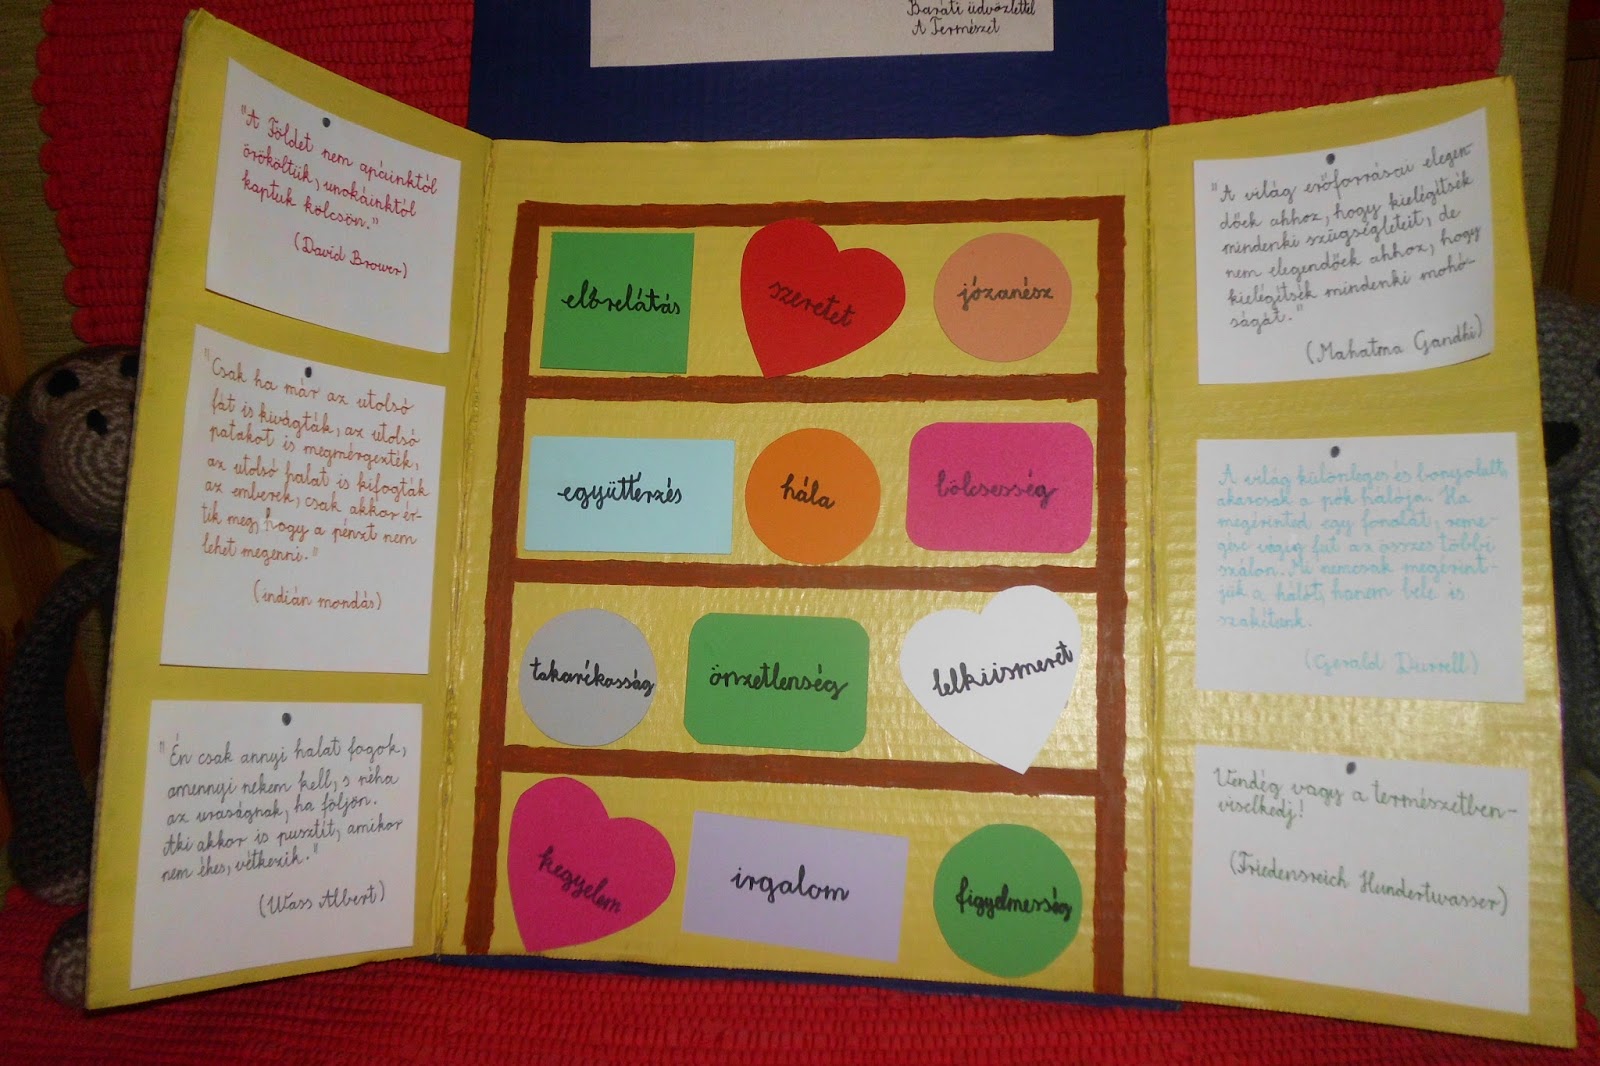 Baráti üdvözlettel
A Természet
"A Földet nem apáinktól
örököltük, unokáinktól
kaptuk kölcsön."
(David Brower)
"Csak ha már az utolsó
fát is kivágták, az utolsó
patakot is megmérgezték,
az utolsó halat is kifogták
az emberek, csak akkor ér-
tik meg, hogy a pénzt nem
lehet megenni."
(indián mondás)
"Én csak annyi halat fogok,
amennyi nekem kell, s néha
az uraságnak, ha följön.
Aki akkor is pusztít, amikor
nem éhes, vétkezik."
(Wass Albert)
előrelátás
szeretet
józanész
együttérzés
hála
bölcsesség
takarékosság
önzetlenség
lelkiismeret
kegyelem
irgalom
figyelmesség
"A világ erőforrásai elegen-
dőek ahhoz, hogy kielégítsék
mindenki szügségleteit, de
nem elegendőek ahhoz, hogy
kielégítsék mindenki mohó-
ságát."
(Mahatma Gandhi)
A világ különleges és bonyolult,
akárcsak a pók hálója. Ha
megérinted egy fonalát, reme-
gése végig fut az összes többi
szálon. Mi nemcsak megérint-
jük a hálót, hanem bele is
szakítunk.
(Gerald Durrell)
Vendég vagy a természetben-
viselkedj!
(Friedensreich Hundertwasser)